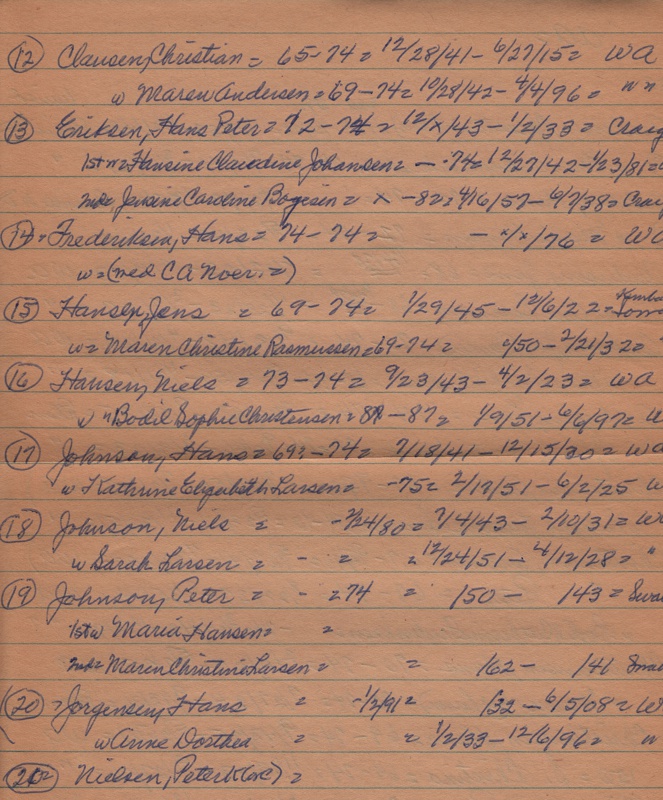 (12) Clausen, Christian = 65-74 = 12/28/41 - 6/27/15 = WA
w Maren Andersen = 69-74 = 10/28/42 - 4/4/96 = " "
(13) Eriksen, Hans Peter = 72-74 = 12/x/43 - 1/2/33 = Craig
1st w = Hansine Claudine Johansen = - -74 = 12/27/42 - 1/23/81 =
2nd = Jensine Caroline Bogesen = x -82 = 4/16/57 - 6/7/38 = Craig
(14) = Frederiksen, Hans = 74-74 = - x/x/76 = WA
w = (med C A Noer. =)
(15) Hansen, Jens = 69-74 = 1/29/45 - 12/6/22 =
w = Maren Christine Rasmussen = 69-74 = /50 - 2/21/32 =
(16) Hansen, Niels = 73-74 = 9/23/43 - 4/2/23 = WA
w " Bodil Sophie Christensen = -87 = 1/9/51 - 6/6/97 = W
(17) Johnson, Hans = 69? -74 = 7/18/41 - 12/15/30 = WA
w Kathrine Elizabeth Larsen = -75 = 2/17/51 - 6/2/25 W
(18) Johnson, Niels = -2/24/80 = 7/4/43 - 2/10/31 = W
w Sarah Larsen = - = = 12/24/51 - 4/12/28 = "
(19) Johnson, Peter = - =74 = 150 - 143 = Swa
1st w Maria Hansen = =
2nd = Maren Christine Larsen = = 162 - 141
(20) = Jorgensen, Hans = -1/2/91 = 132 - 6/5/08 = W
w Anne Dorthea = = 1/2/33 - 12/6/96 = "
(21) = Nielsen, Peter K =